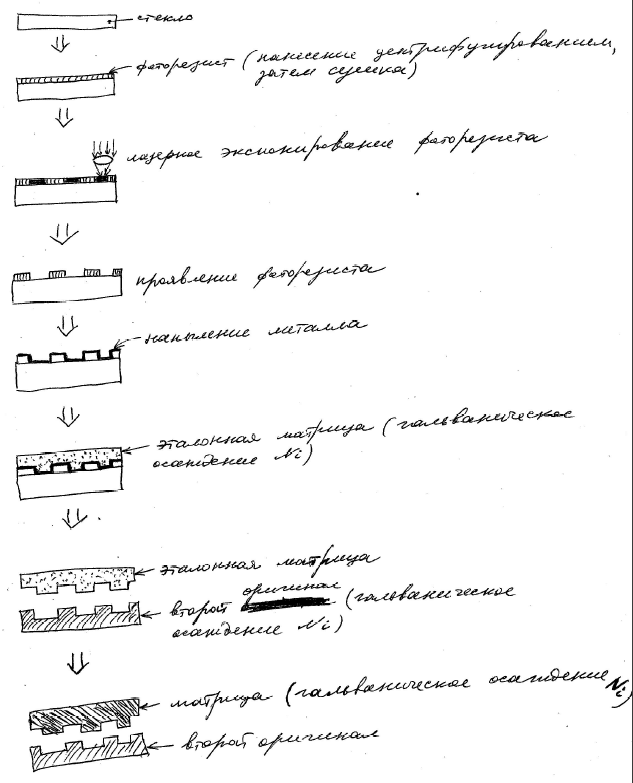 стекло
фоторезист (нанесение центрифугированием,
затем сушка)
лазерное экспонирование фоторезиста
проявление фоторезиста
напыление металла
эталонная матрица (гальваническое
осаждение Ni)
эталонная матрица
оригинал
второй (гальваническое
осаждение Ni)
матрица (гальваническое осаждение Ni)
второй оригинал